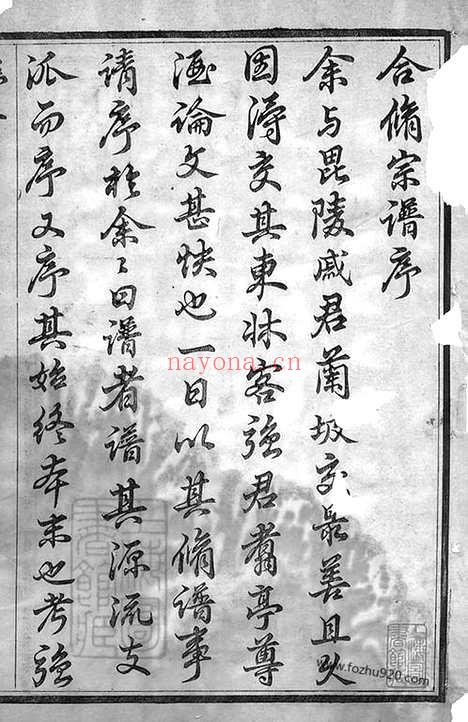 合脩宗譜序
余与毘陵戚君蘭坡交最善且久
因得交其東牀客強君翥亭尊
酒論文甚快也一日以其脩譜事
請序於余〻曰譜者譜其源流支
派而序又序其始終本末也考強
nayona.cn
www.fozhu920.com